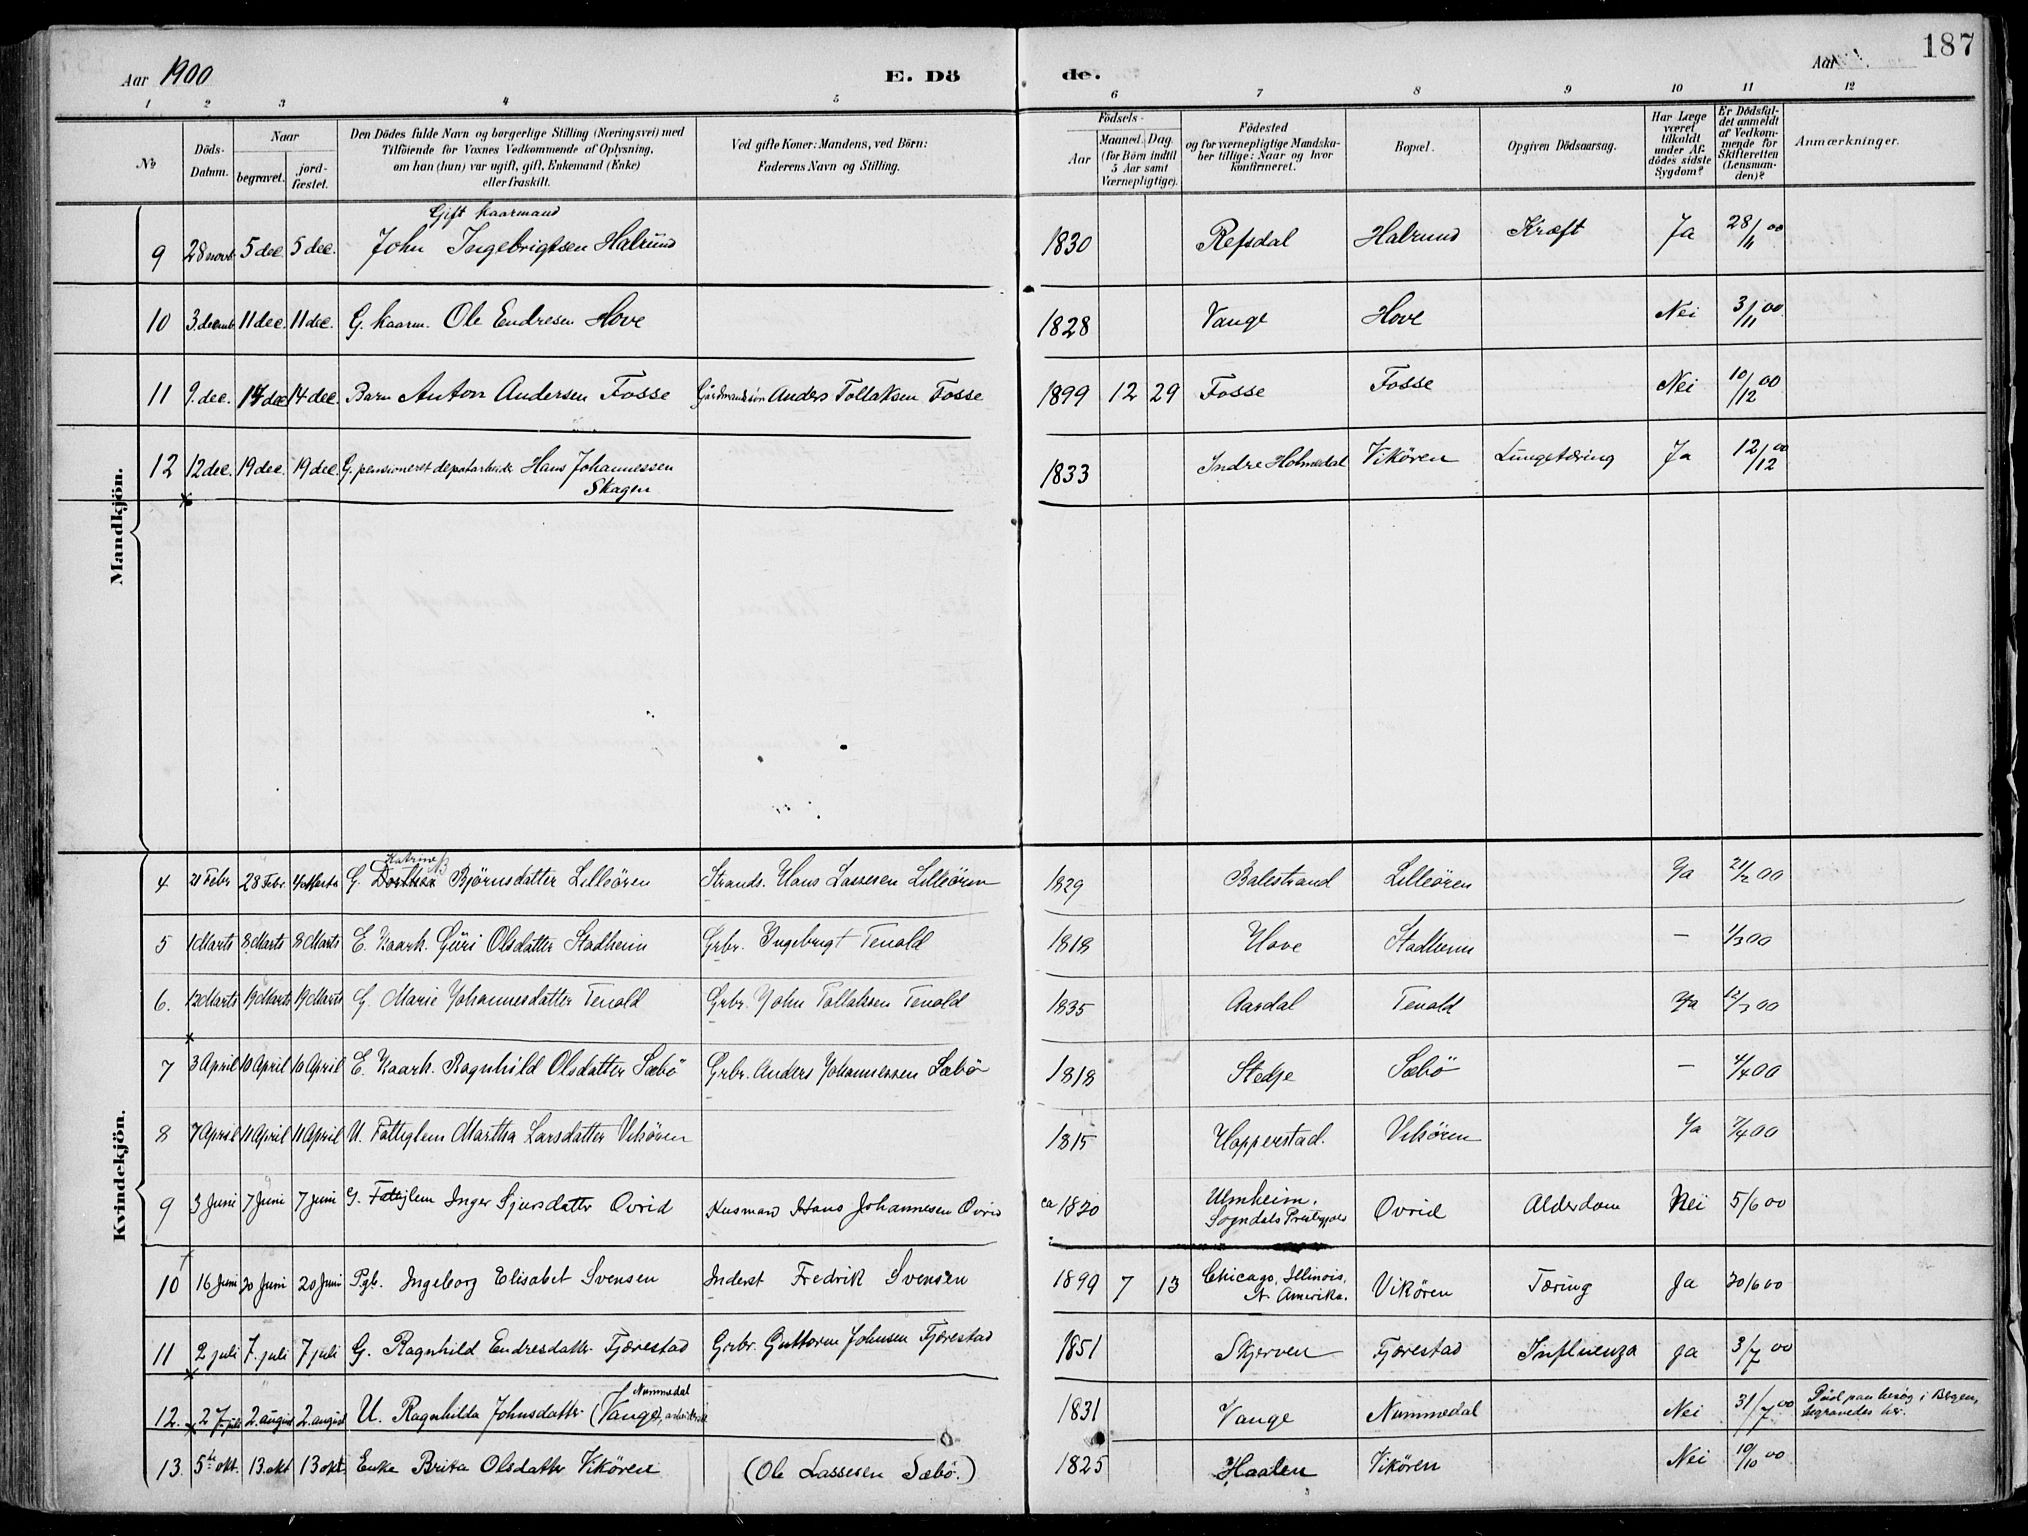 Aar 1900
E. Dö
de.
Aar
187
1 2 3 4 5 6 7 8 9 10 11 12
No
Döds-Datum.
Naar
begravet.
jord-fæstet.
Den Dödes fulde Navn og borgerlige Stilling (Næringsvei) med
Tilföiende for Voxnes Vedkommende af Oplysning,
om han (hun) var ugift, gift, Enkemand (Enke)
eller fraskilt.
Ved gifte Koner: Mandens, ved Börn:
Faderens Navn og Stilling.
Födsels-
Aar
Maaned. Dag.
(for Börn indtil
5 Aar samt
Værnepligtige).
Födested
og for værnepligtige Mandska-
ber tillige: Naar og hvor
konfirmeret.
Bopæl.
Opgiven Dödsaarsag.
Har Læge
været
tilkaldt
under Af-
dödes sidste
Sygdom?
Er Dödsfal-
det anmeldt
af Vedkom-
mende for
Skifteretten
(Lensman-
den)?
Anmærkninger.
Mandkjön.
Gift Kaarmand
9 28 novb. 5 dec. 5 dec. John Ingebrigtsen Halrund 1830 Refsdal Halrund Kræft Ja 28/11 00
10 3. decemb. 11 dec. 11 dec. G. Kaarm. Ole Endresen Hove 1828 Vange Hove Nei 3/11 00
11 9. dec. 14 dec 14 dec. Barn Anton Andersen Fosse Gårdmandssön Anders Tollaksen Fosse 1899 12 29 Fosse Fosse Nei 10/12 00
12 12 dec. 19 dec. 19 dec. G. pensioneret depotarbeider Hans Johannessen 1833 Indre Holmedal Vikören Lungetæring Ja 12/12 00
Skagen
Kvindekjön.
Katrine
4 21 Febr 28 Febr. 4 Marts G. Dorthea Bjørnsdatter Lilleören Strands. Hans Lassesen Lilleören 1829 Balestrand Lilleören Ja 21/2 00
5 1 Marts 8 Marts 8 Marts E. Kaark. Guri Olsdatter Stadheim Grbr. Ingebrigt Tenold 1818 Hove Stadheim – 1/3 00
6. 12 Marts 19 Marts 19 Marts G Marie Johannesdatter Tenold Grbr. John Tollaksen Tenold 1835 Aardal Tenold Ja 12/3 00
7 3 April 10 April 10 April E. Kaark. Ragnhild Olsdatter Sæbö Grbr. Anders Johannessen Sæbö 1818 Stedje Sæbö – 4/4 00
8 7 April 11 April 11 April U. Fattiglem Martha Larsdatter Vikören 1815 Hopperstad. Vikören Ja 7/4 00
9 3 Juni 7 Juni 7 Juni G. Fattiglem Inger Sjursdatter Ovrid Husmand Hans Johannesen Ovrid ca 1820 Ulmheim, Ovrid Alderdom Nei 5/6 00
Sogndals
10 16 Juni 20 Juni 20 Juni Pgb. Ingeborg Elisabet Svensen Inderst Fredrik Svensen 1899 7 13 Chicago, Illinois, Vikören Tæring Ja 20/6 00
N. Amerika.
11 2 juli 7. juli 7 juli G. Ragnhild Endresdatter Fjærestad Grbr. Guttorm Johnsen Fjærestad 1851 Skjerven Fjærestad Influenza Ja 3/7 00
Nummedal
12. 27 juli 2. august 2. august U. Ragnhilda Johnsdatter (Vange), 1831 Vange Nummedal Nei 31/7 00 Död paa besög i Bergen,
begravedes her.
13. 5te okt. 13. okt 13 okt. Enke Brita Olsdatter Vikören (Ole Lassesen Sæbö.) 1825 Haalen Vikören Nei 10/10 00